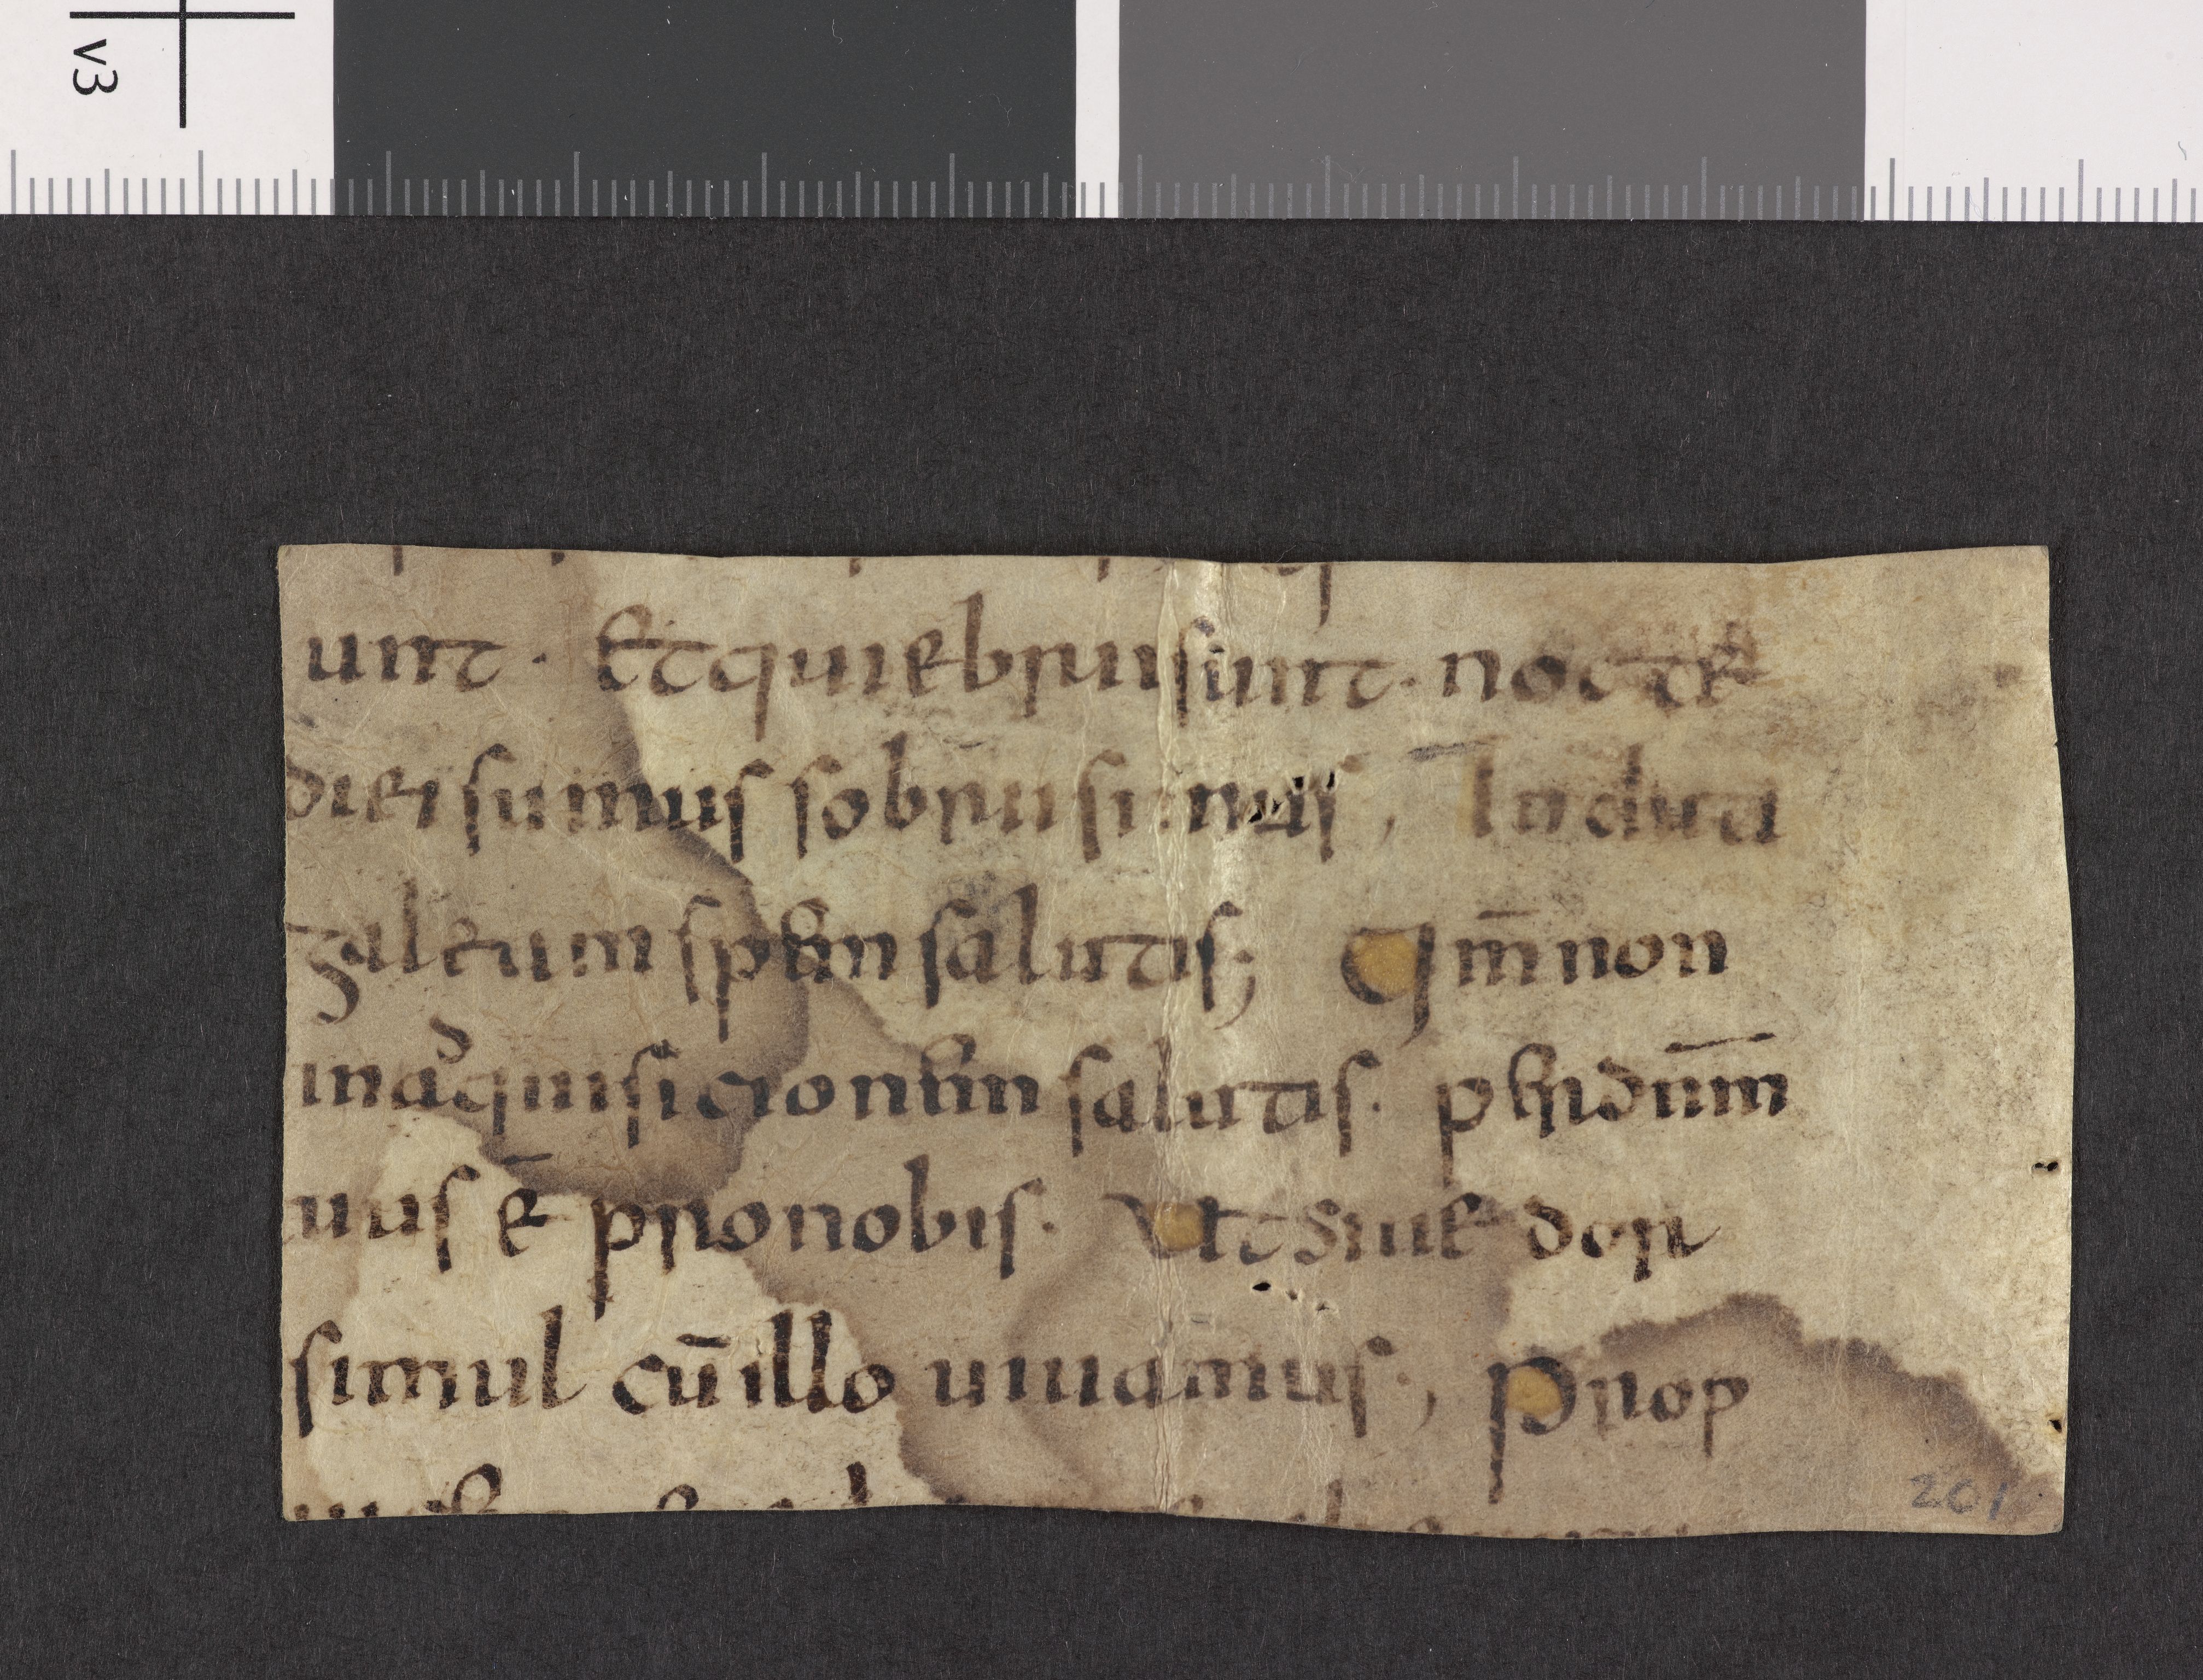 v3
unt. Et qui ebrii sunt. nocte
diei sumus sobrii simus, Induti
galeam spem salutis; Qm̅ non
in adquisicionem salutis. per dn̅m
uus e̅ pro nobis. Vt siue dor
simul cu̅ illo uiuamus, Prop
201